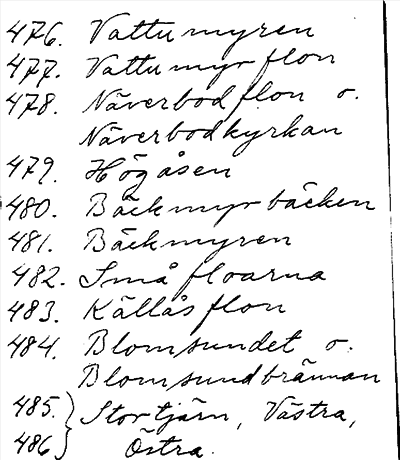 476. Vattumyren
477. Vattumyrflon
478. Näverbodflon o.
Näverbodkyrkan
479. Högåsen
480. Bäckmyrbäcken
481. Bäckmyren
482. Småfloarna
483. Källåsflon
484. Blomsundet o.
Blomsundbrännan
485. } Stortjärn, Västra,
486 } Östra.